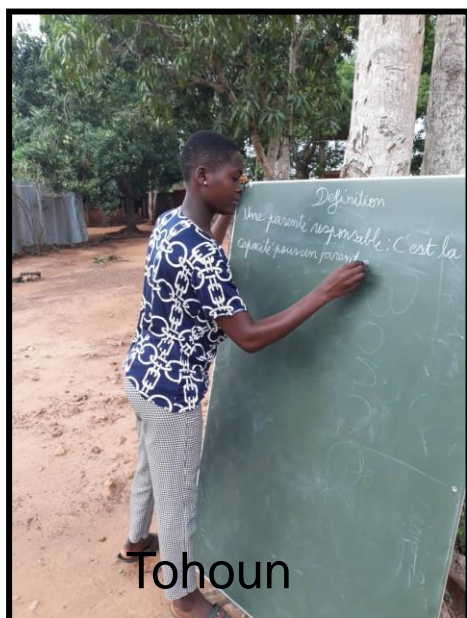 Definition
Une parenté responsable: C'est la
capacité pour un parent
Tohoun